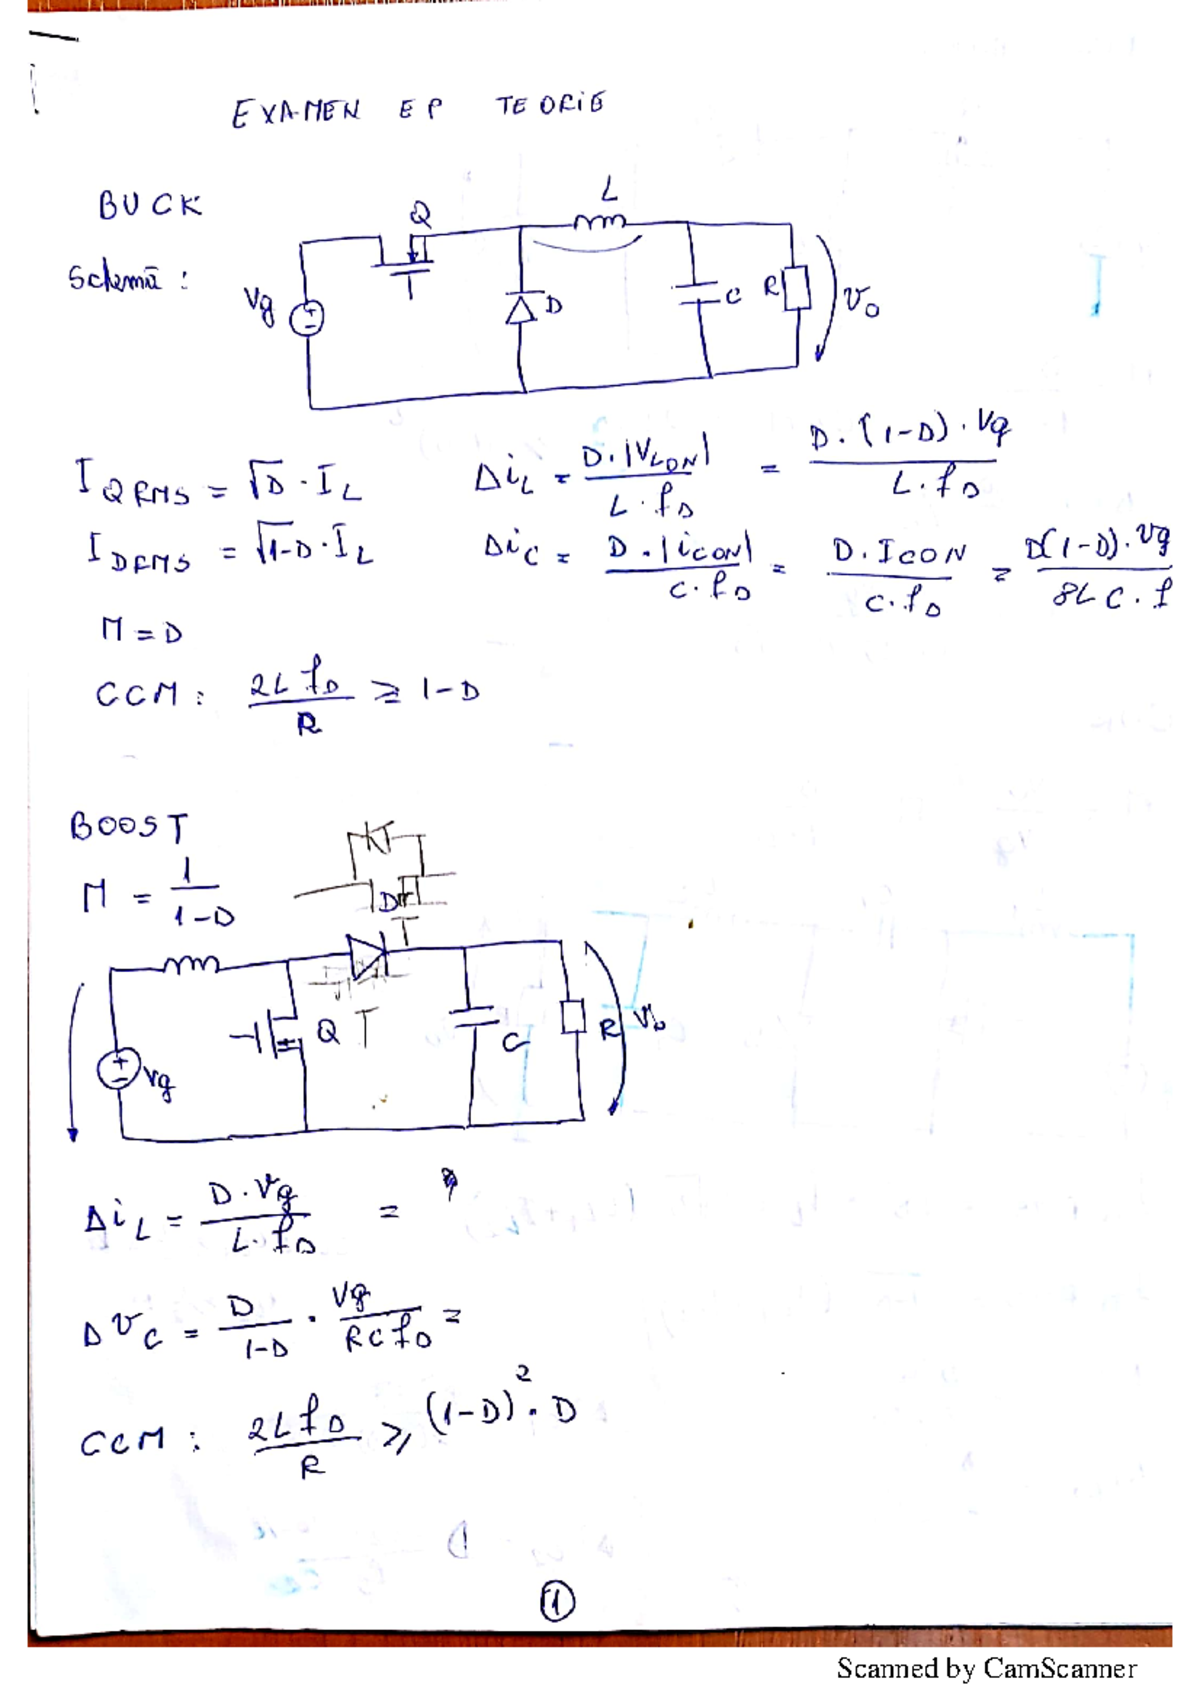 EXAMEN EP TEORIE
BUCK
Schemă :
Q
L
Vg
D
C
R
Vo
I QRMS = √D · I L
Δi L = D·|V LON| / L·f D = D·(1-D)·Vg / L·f D
I DRMS = √1-D · I L
Δi C = D·|i CON| / C·f D = D·I CON / C·f D = D(1-D)·Vg / 8LC·f
M = D
CCM : 2L f D / R ≥ 1-D
BOOST
M = 1 / 1-D
D
T
Q T
C
R
Vo
Vg
Δi L = D·Vg / L·f D =
Δ v C = D / 1-D · Vg / RC f D =
CCM : 2L f D / R ≥ (1-D)² · D
1
Scanned by CamScanner